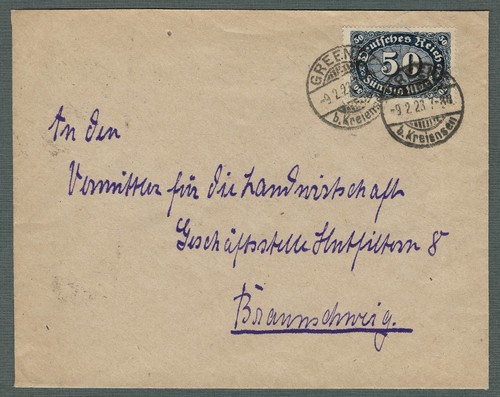 50 Deutsches Reich 50
50
Fünfzig Mark
GREENE
-9.2.23
b. Kreiensen
-9.2.23
b. Kreiensen
An den
Vermittler für die Landwirtschaft
Geschäftsstelle Hutfiltern 8
Braunschweig.